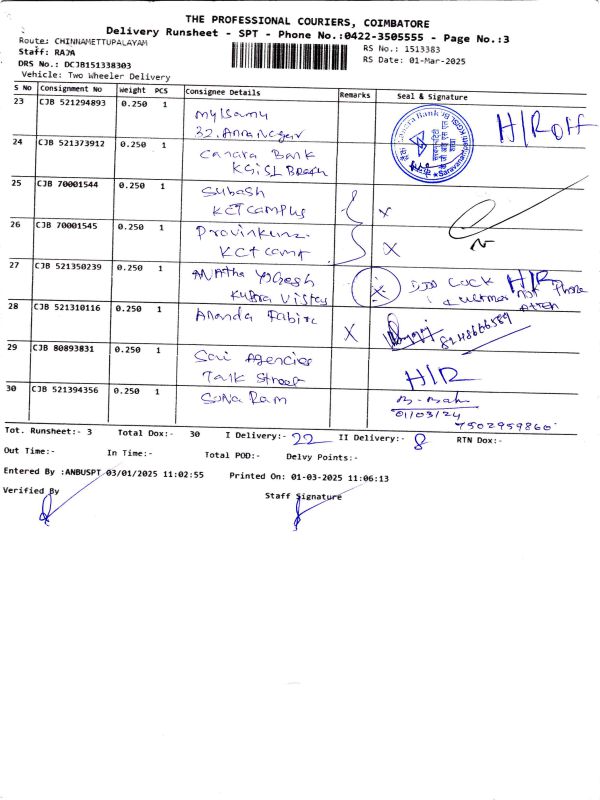 THE PROFESSIONAL COURIERS, COIMBATORE
Delivery Runsheet - SPT - Phone No.:0422-3505555 - Page No.:3
Route: CHINNAMETTUPALAYAM
Staff: RAJA
DRS No.: DCJB151338303
Vehicle: Two Wheeler Delivery
RS No.: 1513383
RS Date: 01-Mar-2025
S No Consignment No Weight PCS Consignee Details Remarks Seal & Signature
23 CJB 521294893 0.250 1 Mylsamy
32, Anna Nagar H/R off
24 CJB 521373912 0.250 1 Canara Bank
KGISL Branch
25 CJB 70001544 0.250 1 Subash
KCT campus x
26 CJB 70001545 0.250 1
KCT camp x
27 CJB 521350239 0.250 1 Yogesh
x Lock H/R
not Phone
28 CJB 521310116 0.250 1 Ananda
x
29 CJB 80893831 0.250 1 Sai Agencies
Street H/R
30 CJB 521394356 0.250 1 Sona Ram
01/03/24
7502959860
Tot. Runsheet:- 3 Total Dox:- 30 I Delivery:- 22 II Delivery:- 8 RTN Dox:-
Out Time:- In Time:- Total POD:- Delvy Points:-
Entered By :ANBUSPT 03/01/2025 11:02:55 Printed On: 01-03-2025 11:06:13
Verified By Staff Signature